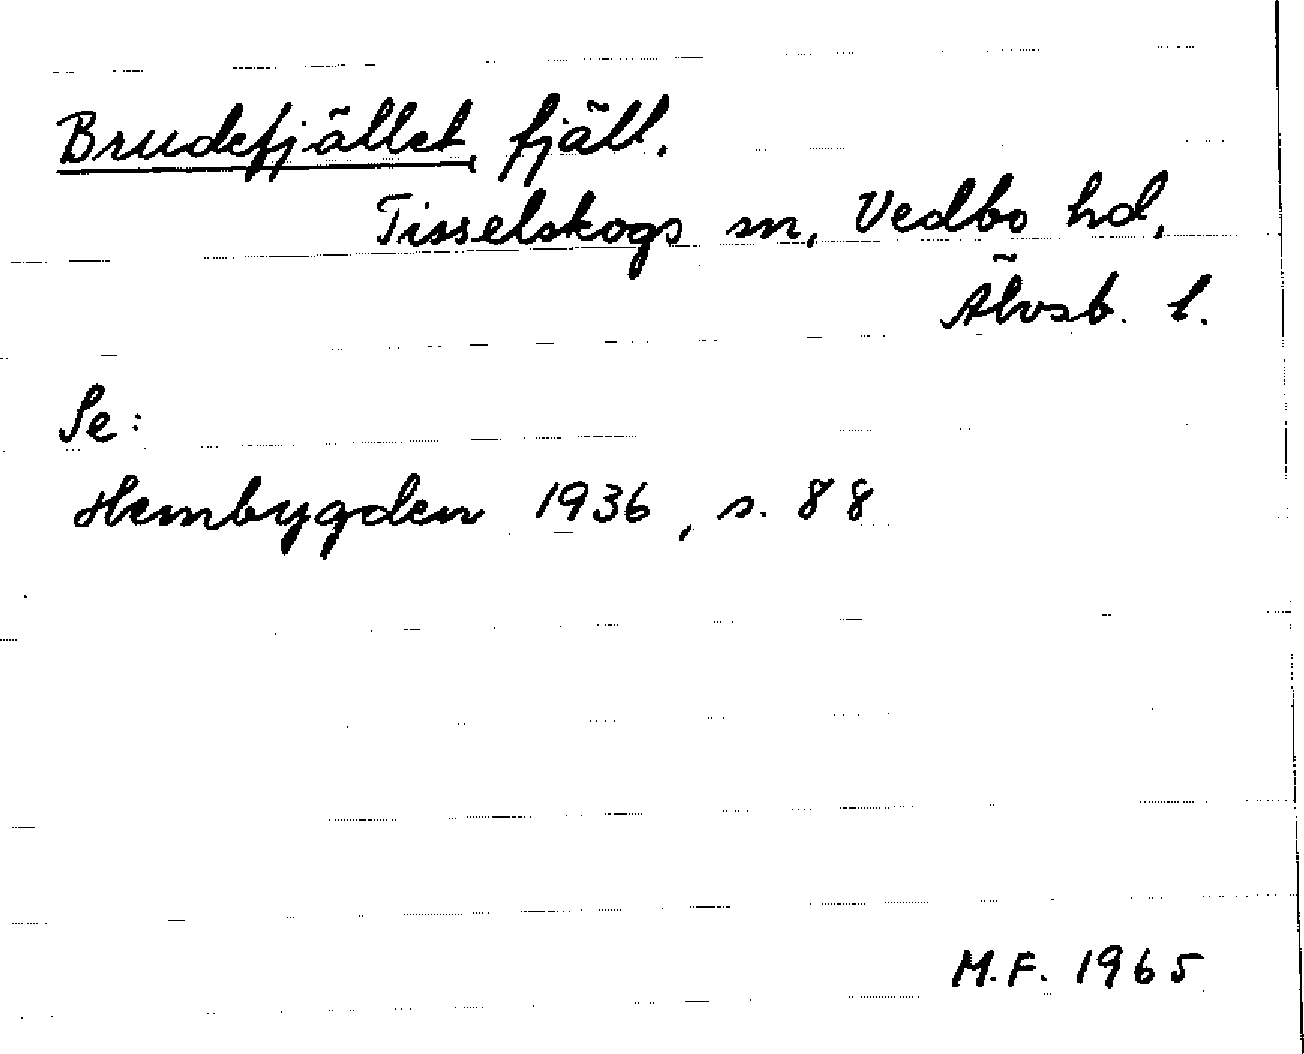 Brudefjället, fjäll.
Tisselskogs sn, Vedbo hd,
Älvsb. l.
Se:
Hembygden 1936, s. 88
M.F. 1965